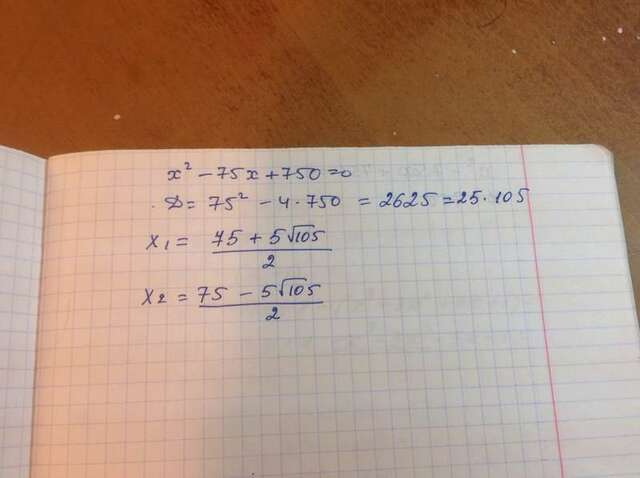 x² − 75x + 750 = 0
D = 75² − 4 · 750 = 2625 = 25 · 105
x₁ = (75 + 5√105) / 2
x₂ = (75 − 5√105) / 2